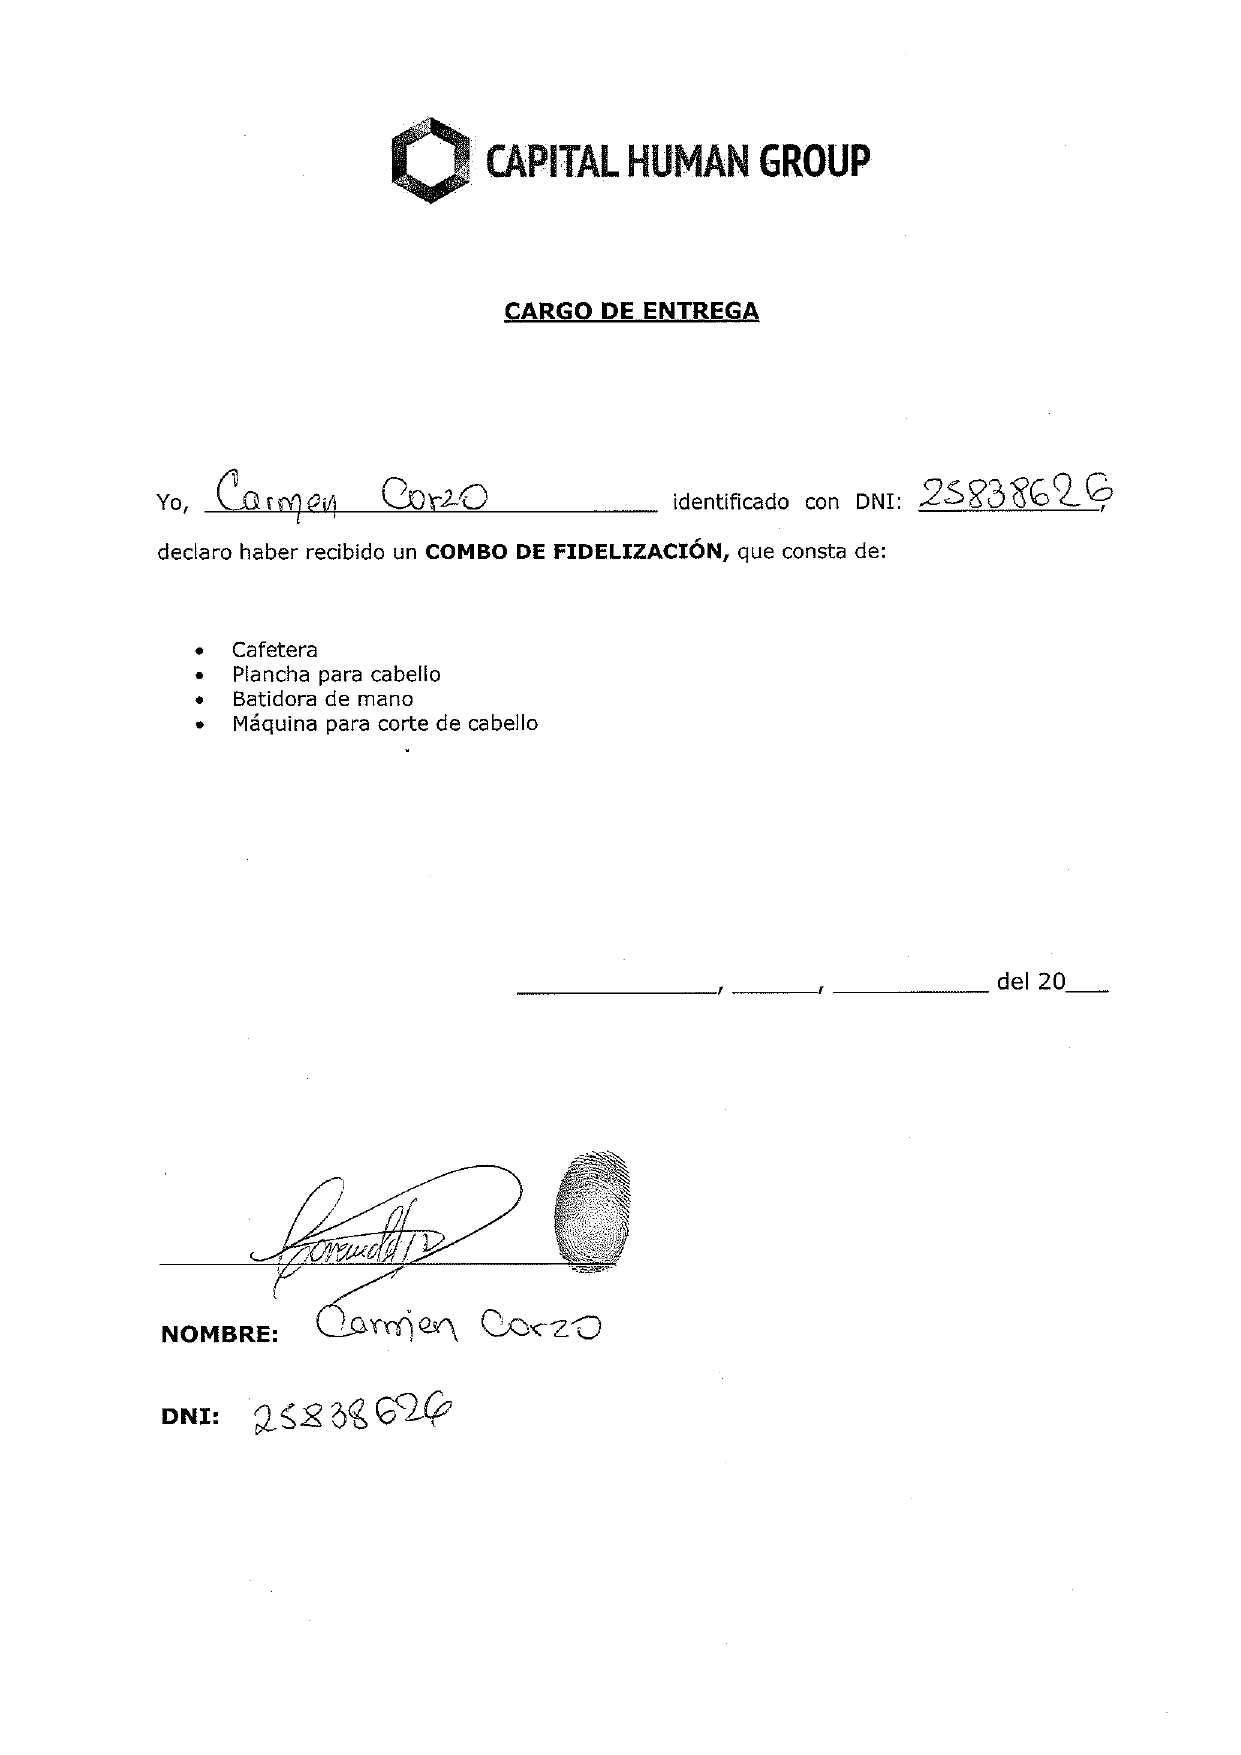 CAPITAL HUMAN GROUP
CARGO DE ENTREGA
Yo, Carmen Corzo identificado con DNI: 25838626,
declaro haber recibido un COMBO DE FIDELIZACIÓN, que consta de:
• Cafetera
• Plancha para cabello
• Batidora de mano
• Máquina para corte de cabello
____________, _____, __________ del 20___
NOMBRE: Carmen Corzo
DNI: 25838626